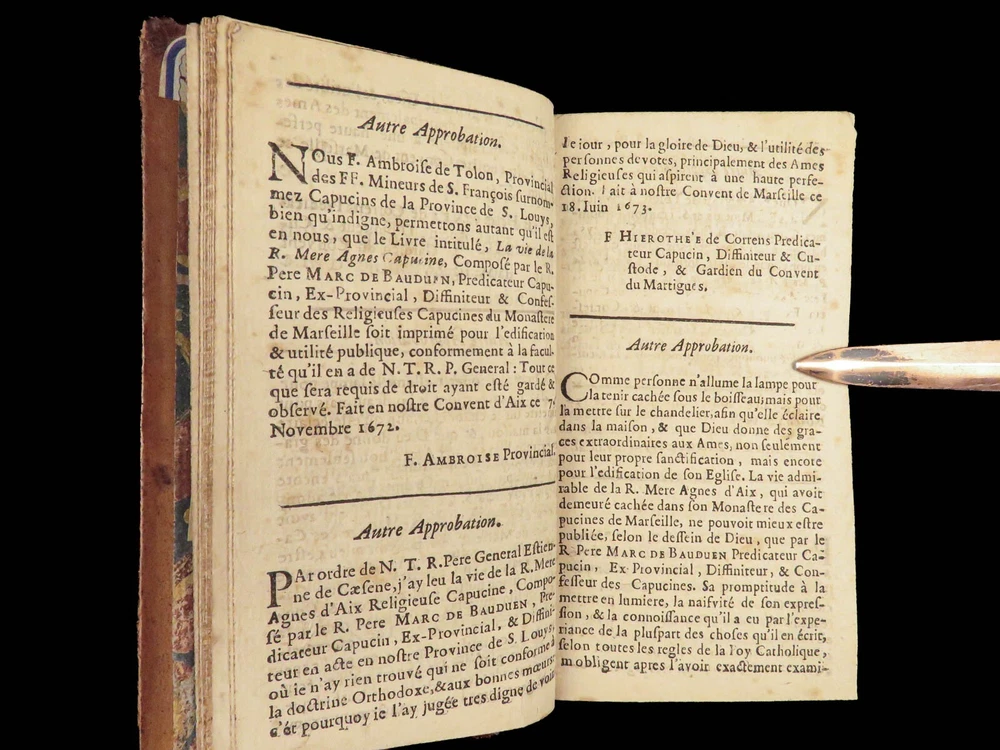 Autre Approbation.
NOus F. Ambroise de Tolon, Provincial
des FF. Mineurs de S. François surnom-
mez Capucins de la Province de S. Louys,
bien qu'indigne, permettons autant qu'il est
en nous, que le Livre intitulé, La vie de la
R. Mere Agnes Capucine, Composé par le R.
Pere MARC DE BAUDUEN, Predicateur Capu-
cin, Ex-Provincial, Diffiniteur & Confes-
seur des Religieuses Capucines du Monastere
de Marseille soit imprimé pour l'edification
& utilité publique, conformement à la facul-
té qu'il en a de N. T. R. P. General : Tout ce
que sera requis de droit ayant esté gardé &
observé. Fait en nostre Convent d'Aix ce 7.
Novembre 1672.
F. AMBROISE Provincial.
Autre Approbation.
PAr ordre de N. T. R. Pere General Estien-
ne de Cæsene, j'ay leu la vie de la R. Mere
Agnes d'Aix Religieuse Capucine, Compo-
sé par le R. Pere MARC DE BAUDUEN, Pre-
dicateur Capucin, Ex-Provincial, & Diffini-
teur en acte en nostre Province de S. Louys,
où ie n'ay rien trouvé qui ne soit conforme à
la doctrine Orthodoxe, & aux bonnes mœurs:
c'ét pourquoy ie l'ay jugée tres digne de voir
le iour, pour la gloire de Dieu, & l'utilité des
personnes devotes, principalement des Ames
Religieuses qui aspirent à une haute perfe-
ction. Fait à nostre Convent de Marseille ce
18. Iuin 1673.
F HIEROTHE'E de Correns Predica-
teur Capucin, Diffiniteur & Cu-
stode, & Gardien du Convent
du Martigues.
Autre Approbation.
COmme personne n'allume la lampe pour
la tenir cachée sous le boisseau; mais pour
la mettre sur le chandelier, afin qu'elle éclaire
dans la maison, & que Dieu donne des gra-
ces extraordinaires aux Ames, non seulement
pour leur propre sanctification, mais encore
pour l'edification de son Eglise. La vie admi-
rable de la R. Mere Agnes d'Aix, qui avoit
demeuré cachée dans son Monastere des Ca-
pucines de Marseille, ne pouvoit mieux estre
publiée, selon le dessein de Dieu, que par le
R Pere MARC DE BAUDUEN Predicateur Ca-
pucin, Ex-Provincial, Diffiniteur, & Con-
fesseur des Capucines. Sa promptitude à la
mettre en lumiere, la naifvité de son expres-
sion, & la connoissance qu'il a eu par l'expe-
riance de la pluspart des choses qu'il en écrit,
selon toutes les regles de la Foy Catholique,
m obligent apres l'avoir exactement exami-